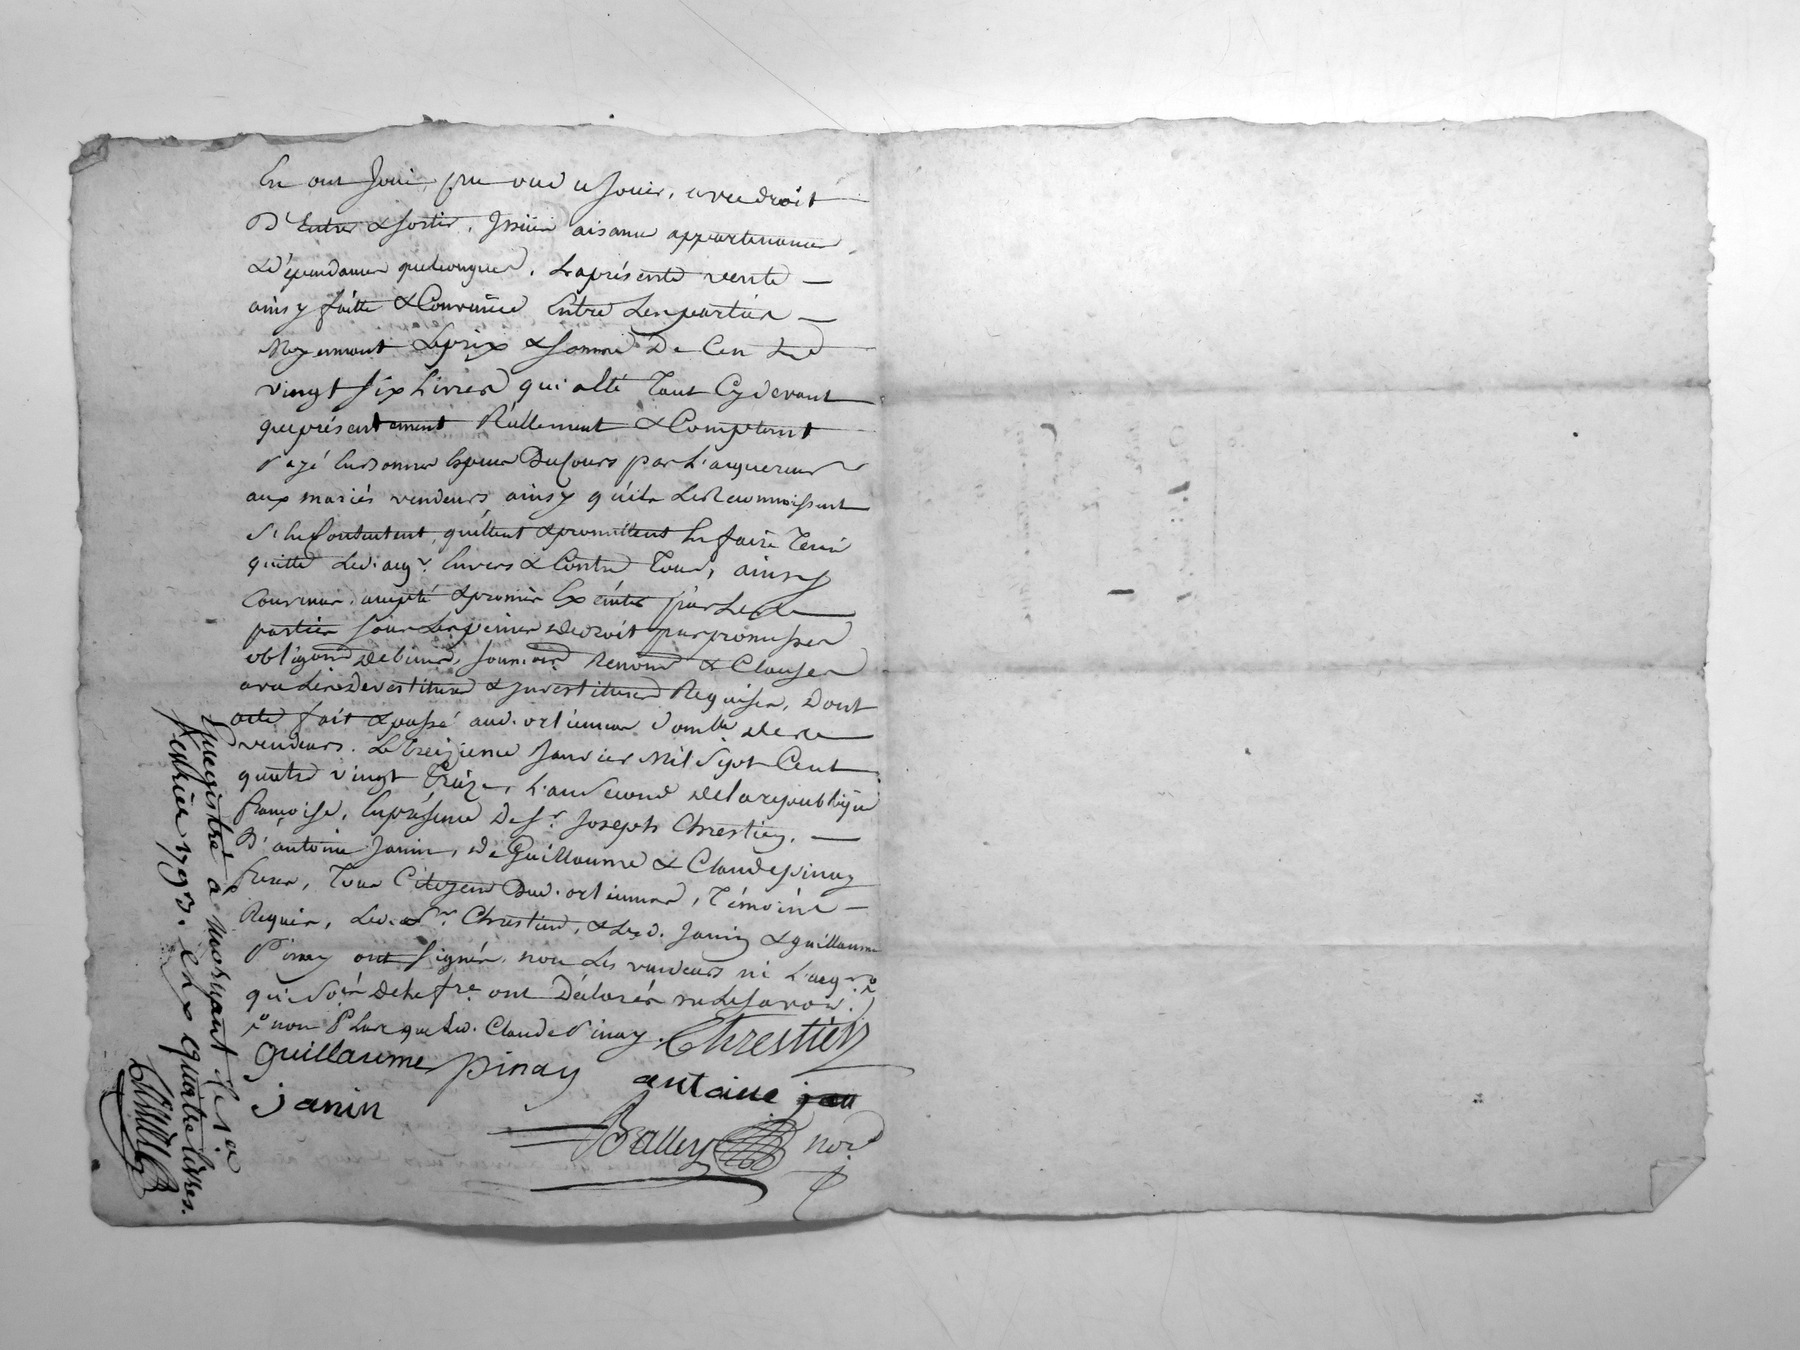 En ont Joui, pu ou du Jouir, avec droit
D'Entrer & sortir, Issües aisances appartenances
& dépendances quelconques. La présente vente
ainsy faitte & Convenüe Entre Les parties
Moyennant Le prix & somme De Cent
vingt six Livres qui a Eté Tant Cy devant
que présentement Réellement & Comptant
payé En bonnes Espèces Du Cours par L'acquereur
aux mariés vendeurs, ainsy qu'ils Le Reconnoissent
s'En Contentent, quittent & promettent En faire Tenir
quitte Led. acqr. Envers & Contre Tous, ainsy
Convenu, accepté & promis Exécuter par Les
parties sous Les peines de droit par promesses
obligons de biens, soumons Renons & Clauses
avec Les Devestitures & Investitures Requises, Dont
acte fait & passé aud. orlienas Domlle des
vendeurs. Le treizieme Janvier Mil Sept Cent
quatre vingt Treize, L'an second de la république
françoise, En présence De sr. Joseph Chrestien,
D'antoine Janin, de Guillaume & Claude pinay
freres, Tous Citoyens Dud. orlienas, Témoins
Requis, Led. sr. Chrestien, & Led. Janin & guillaume
Pinay ont signés, non Les vendeurs ni L'acqr.
qui De Ce fre. ont Déclarés ne le savoir.
non Plus que Led. Claude Pinay.
Chrestien
Guillaume pinay
antoine
janin
Balley nore
Enregistré à Mornant le 1er
fevrier 1793. reçu quatre livres.